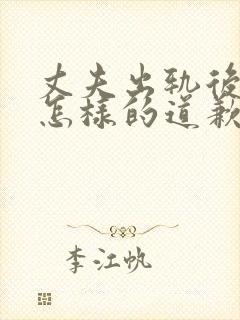 丈夫出轨後
怎樣的道歉
李江帆